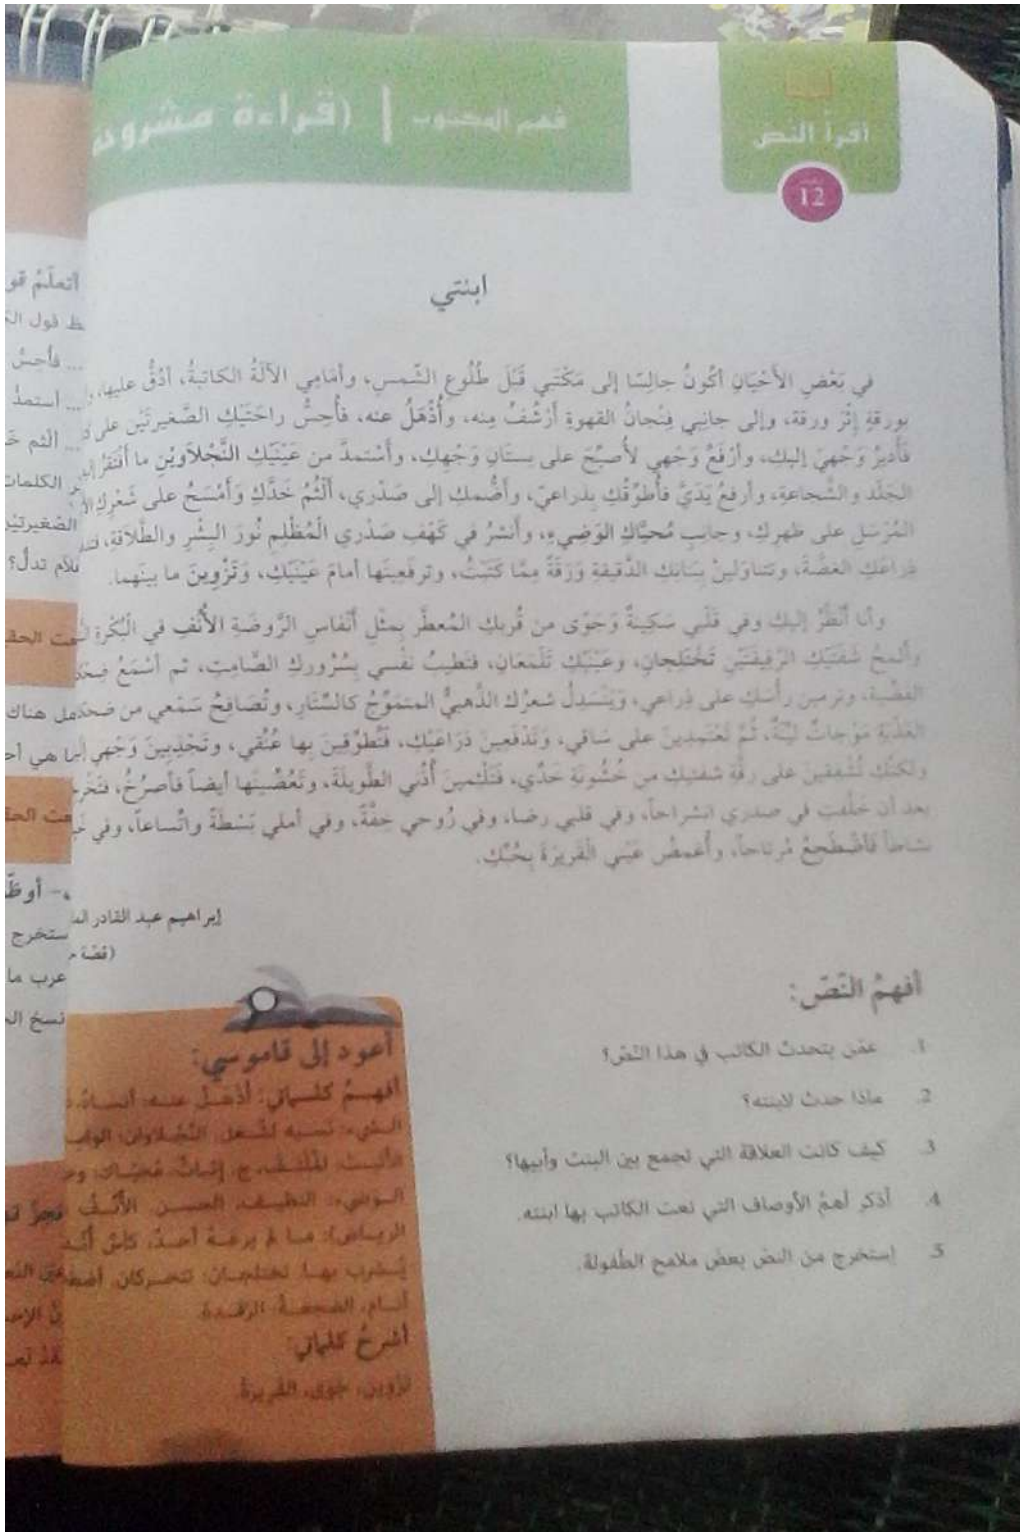 أقرأ النص
فهم المكتوب | (قراءة مشروحة
12
ابنتي
في بَعْضِ الأَحْيَانِ أكُونُ جالِسًا إلى مَكْتَبي قَبْلَ طُلُوعِ الشّمسِ، وأمَامِي الآلَةُ الكاتبةُ، أدُقُّ عليها،
بورقةٍ إثْرَ ورقة، وإلى جانِبي فِنْجانُ القهوةِ أرْشُفُ مِنه، وأُذْهَلُ عنه، فأُحِسُّ راحَتَيْكِ الصَّغيرتَيْنِ على
فأُديرُ وَجْهيَ إليكِ، وأرْفَعُ وَجْهي لأُصبِّحَ على بستانِ وَجْهِكِ، وأسْتمدَّ من عَيْنَيْكِ النَّجْلاَوَيْنِ ما أفْتَقرُ
الجَلَد والشَّجاعةِ، وأرفعُ يَدَيَّ فأُطوِّقُكِ بِذراعيّ، وأضُّمكِ إلى صَدْري، ألْثُمُ خَدَّكِ وَأمْسَحُ على شَعْرِكِ
المُرْسَلِ على ظهرِكِ، وجانِبِ مُحيَّاكِ الوَضِيءِ، وأنْشرُ في كَهْفِ صَدْري الْمُظْلِمِ نُورَ البِشْرِ والطَّلاَقةِ،
ذِراعَكِ الغضَّةَ، وتتناولينْ بِبَنانِكِ الدَّقيقةِ وَرَقَةً مِمَّا كَتَبْتُ، وترفَعِينَها أمامَ عَيْنَيْكِ، وَتَزْوِينَ ما بينَهما.
وأنا أنْظُرُ إليكِ وفي قَلْبي سَكِينةٌ وَجَوًى من قُربكِ المُعطَّرِ بِمثْلِ أنْفاسِ الرَّوضَةِ الأُنُفِ في الْبُكْرةِ
وألْمحُ شَفَتَيْكِ الرَّقِيقَتَيْنِ تَخْتَلِجانِ، وعَيْنَيْكِ تَلْمَعَانِ، فَتَطيبُ نفْسي بِسُرُورِكِ الصَّامِتِ، ثم أسْمَعُ
الفضّية، وترمين رأسَكِ على ذِراعي، وَيَنْسَدِلُ شعرُكِ الذَّهبيُّ المتمَوِّجُ كالسِّتَارِ، وتُصَافِحُ سَمْعي من
العَذْبَةِ مَوْجاتٌ ليِّنَةٌ، ثُمَّ تَعْتمِدينَ على سَاقي، وَتَدْفَعينَ ذَرَاعَيْكِ، فَتُطوِّقينَ بِها عُنُقي، وتَجْذِبينَ وَجْهي
ولكنَّكِ تُشْفِقينَ على رِقَّةِ شَفتيْكِ من خُشُونَةِ خَدِّي، فَتَلْثِمينَ أُذُني الطَّويلَةَ، وتَعُضِّينَها أيضاً فأصرُخُ،
بعد أن خَلَّفتِ في صدري انشراحاً، وفي قلبي رضا، وفي رُوحي خِفَّةً، وفي أملي بَسْطَةً واتِّساعاً، وفي
نشاطاً فأضْطَجِعُ مُرتاحاً، وأُغمضُ عَيْني الْقَريرَةَ بِحُبِّكِ.
إبراهيم عبد القادر
(قصّة
أفهمُ النّصّ:
1. عمّن يتحدث الكاتب في هذا النّصّ؟
2. ماذا حدث لابنته؟
3. كيف كانت العلاقة التي تجمع بين البنت وأبيها؟
4. أذكر أهمّ الأوصاف التي نعت الكاتب بها ابنته.
5. إستخرج من النصّ بعض ملامح الطّفولة.
أعود إلى قاموسي:
أفهمُ كلماتي: أذهل عنه: أنساه،
الشيء: نسيه لشغل. النّجلاوان:
الأثيث: المُلْتفّ، ج. إثاث. مُحيّاك:
الوضيء: النظيف، الحسن. الأُنُفُ
الرياض): ما لم يرعهُ أحدٌ، كأس
يُشرب بها. تختلجان: تتحركان.
أنام، الضجعةُ: الرّقدة.
أشرحُ كلماتي:
تزوين، جَوًى، القريرةُ.
أتعلّمُ
... فأحسُّ
... أستمدُّ
... ألثم
الكلمات
الصّغيرتيْن
تدلّ؟